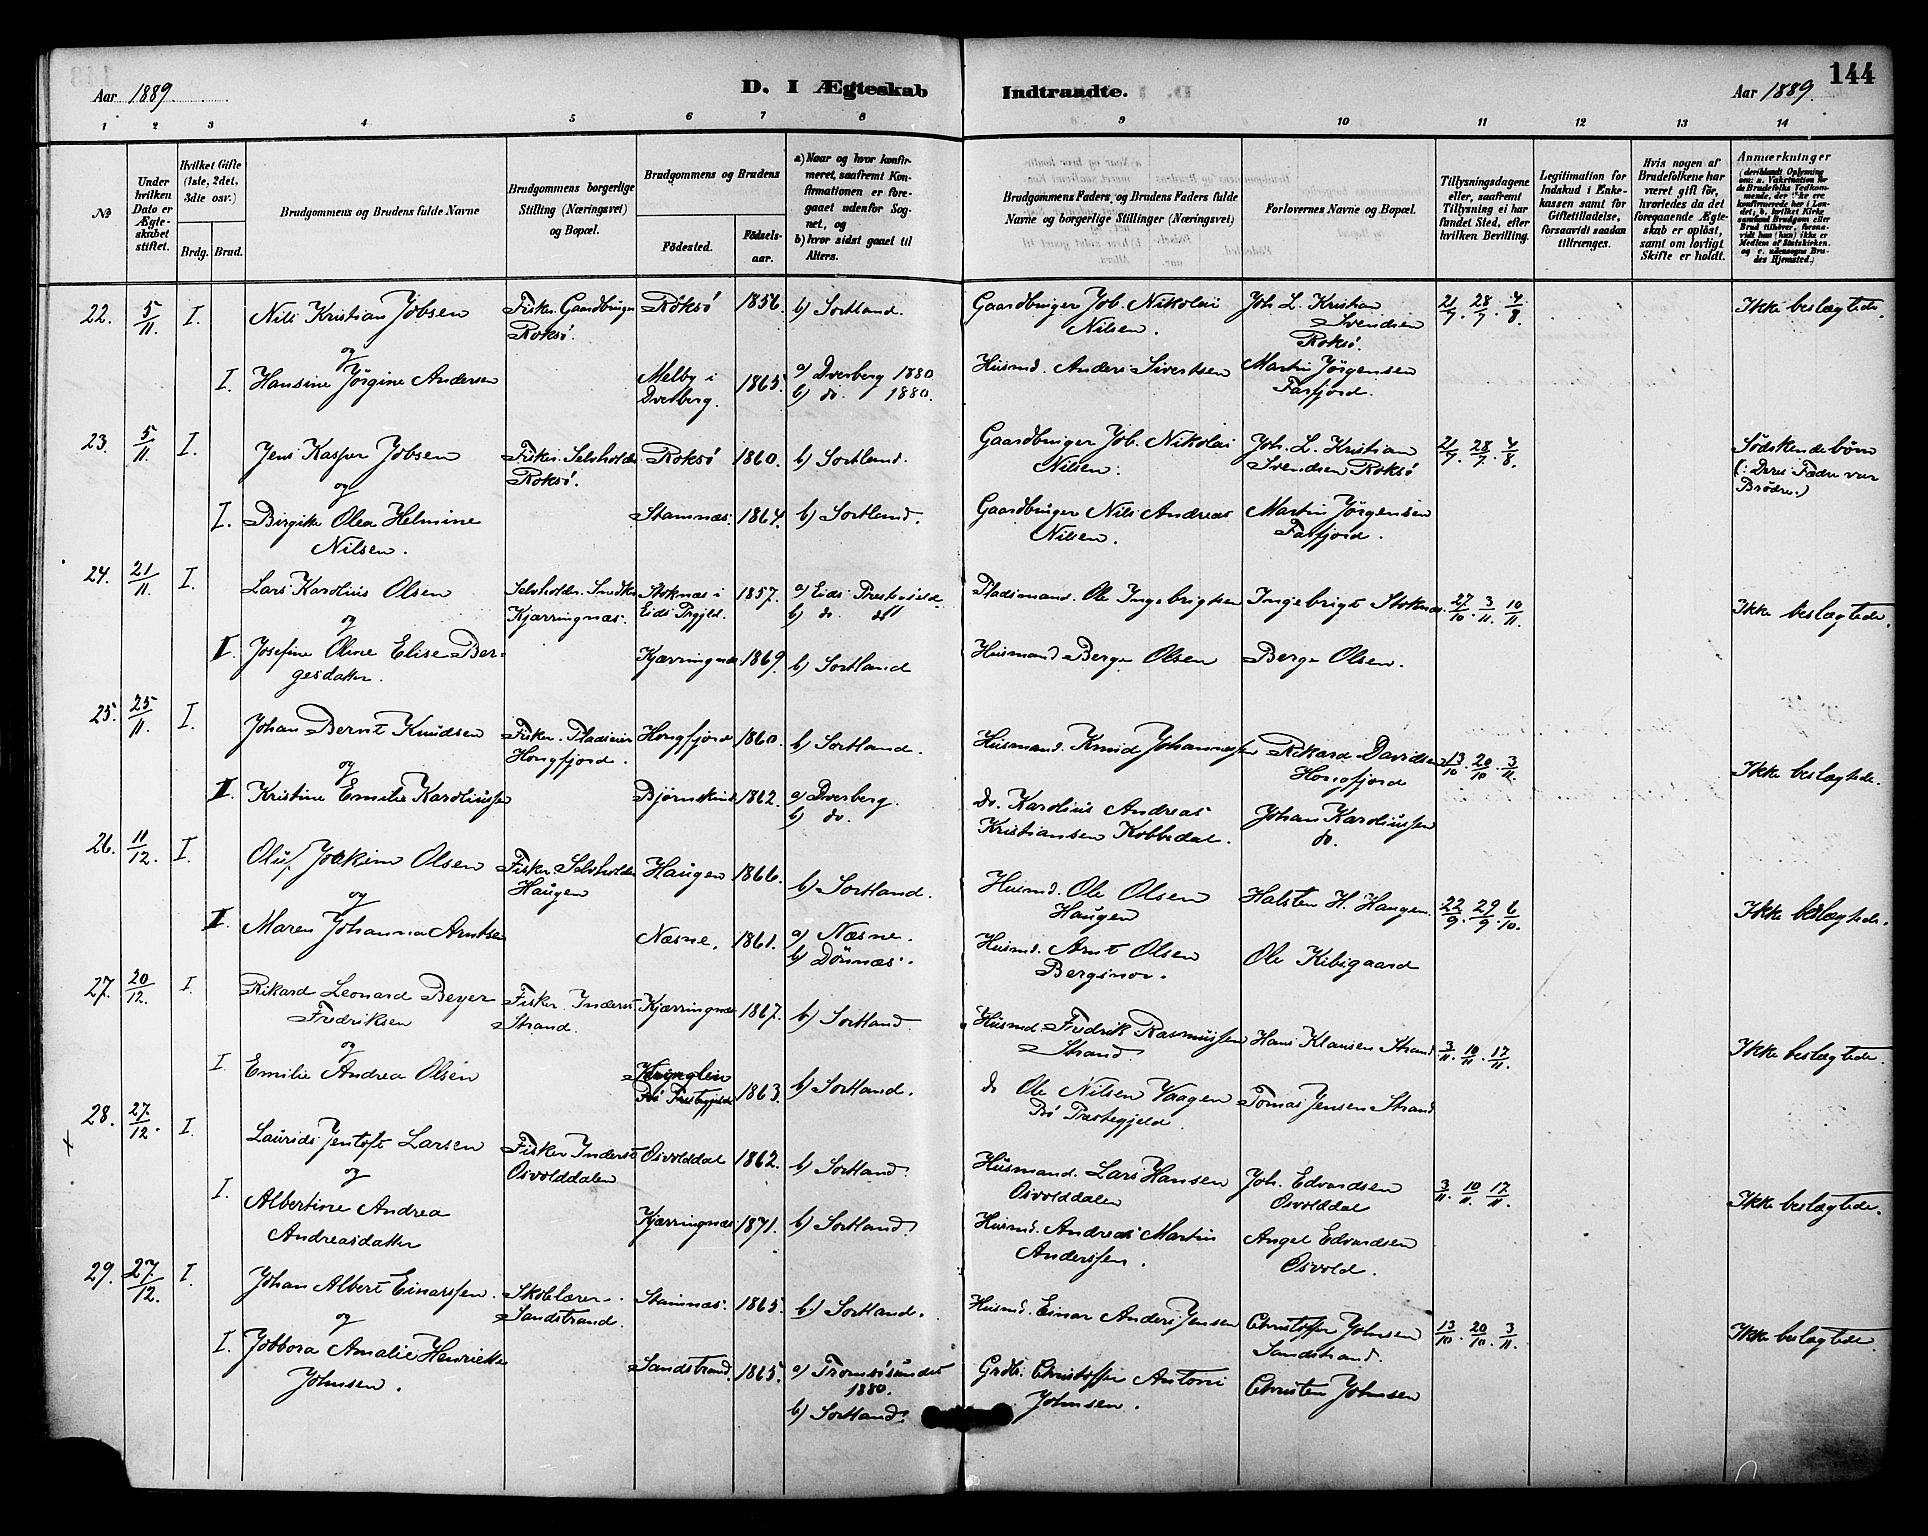 144
Aar 1889.
D. I Ægteskab
Indtraadte.
Aar 1889.
1 2 3 4 5 6 7 8 9 10 11 12 13 14
№
Under hvilken Dato er Ægteskabet stiftet.
Hvilket Gifte (1ste, 2det, 3die osv.)
Brdg. Brud.
Brudgommens og Brudens fulde Navne
Brudgommens borgerlige Stilling (Næringsvei) og Bopæl.
Brudgommens og Brudens
Fødested.
Fødselsaar.
a) Naar og hvor konfirmeret, saafremt Konfirmationen er foregaaet udenfor Sognet, og
b) hvor sidst gaaet til Alters.
Brudgommens Faders og Brudens Faders fulde Navne og borgerlige Stillinger (Næringsvei)
Forlovernes Navne og Bopæl.
Tillysningsdagene eller, saafremt Tillysning ei har fundet Sted, efter hvilken Bevilling.
Legitimation for Indskud i Enkekassen samt for Giftetilladelse, forsaavidt saadan tiltrænges.
Hvis nogen af Brudefolkene har været gift før, hvorledes da det foregaaende Ægteskab er opløst, samt om lovligt Skifte er holdt.
Anmærkninger
22. 5/11 I. Nils Kristian Jobsen Fisker. Gaardbruger Roksø. Roksø 1856. b) Sortland. Gaardbruger Job. Nikolai Nilsen. Joh. L. Kristian Svendsen Roksø. 21/7. 28/7. 4/8. Ikke beslægtede.
og
I. Hansine Jørgine Andersen Melby i Dverberg. 1865. a) Dverberg 1880 b) do. 1880. Husmd. Anders Sivertsen Martin Jørgensen Farfjord.
23. 5/11 I. Jens Kasper Jobsen Fisker. Selvholder Roksø. Roksø 1860. b) Sortland. Gaardbruger Job. Nikolai Nilsen. Joh. L. Kristian Svendsen Roksø 21/7. 28/7. 4/8. Sødskendebørn (: Deres Fædre var Brødre.)
og
I. Birgitte Olea Helmine Nilsen. Stamnæs. 1864. b) Sortland. Gaardbruger Nils Andreas Nilsen. Martin Jørgensen Farfjord.
24. 21/11 I. Lars Karolius Olsen Selvholder. Snedker Kjærringnæs. Stoknæs i Eids Prgjld. 1857. a) Eids Præstegjeld b) do. do Pladsmand. Ole Ingebrigtsen Ingebrigt Stoknæs. 27/10. 3/11. 10/11. Ikke beslægtede.
og
I. Josefine Oline Elise Bergesdatter. Kjærringnæs 1869. b) Sortland Husmand Berge Olsen Berge Olsen.
25. 25/11. I. Johan Bernt Knudsen Fisker. Pladseier Hongfjord. Hongfjord 1860. b) Sortland. Husmand. Knud Johannessen Rikard Davidsen Hongfjord 13/10. 20/10. 3/11. Ikke beslægtede.
og
I. Kristine Emilie Karoliussen Bjørnskind 1862. a) Dverberg. b) do. do. Karolius Andreas Kristiansen Kobbedal. Johan Karoliussen do.
26. 11/12. I. Oluf Joakim Olsen Fisker Selvholder Haugen Haugen 1866. b) Sortland. Husmd. Ole Olsen Haugen Halsten H. Haugen. 22/9. 29/9. 6/10. Ikke beslægtede.
og
I. Maren Johanna Arntsen Næsne. 1861. a) Næsne. b) Dønnæs. Husmd. Arnt Olsen Bergsmov. Ole Kibigaard
27. 20/12. I. Rikard Leonard Beyer Fredriksen Fisker. Inderst Strand. Kjærringnæs 1867. b) Sortland. Husmd. Fredrik Rasmussen Strand. Hans Klausen Strand 3/11. 10/11. 17/11. Ikke beslægtede.
og
I. Emilie Andrea Olsen Bø Prestegjeld 1863. b) Sortland. do Ole Nilsen Vaagen Bø Præstegjeld. Tomas Jensen Strand
28. 27/12. I. Laurids Jentoft Larsen Fisker Inderst Osvolddalen Osvolddal 1862. b) Sortland. Husmand. Lars Hansen Osvolddalen Joh. Edvardsen Osvolddal 3/11. 10/11. 17/11. Ikke beslægtede.
og
I. Albertine Andrea Andreasdatter Kjærringnæs 1871. b) Sortland. Husmd. Andreas Martin Anderssen. Angel Edvardsen Osvold.
29. 27/12. I. Johan Albert Einarssen. Skolelærer. Sandstrand. Stamnæs. 1865. b) Sortland. Husmd. Einar Anders Jensen Christoffer Johnsen Sandstrand. 13/10. 20/10. 3/11. Ikke beslægtede.
og
I. Jobbora Amalie Henrikke Johnsen. Sandstrand. 1865. a) Tromsøsundet 1880. b) Sortland. Grdb. Christoffer Antoni Johnsen. Christen Johnsen